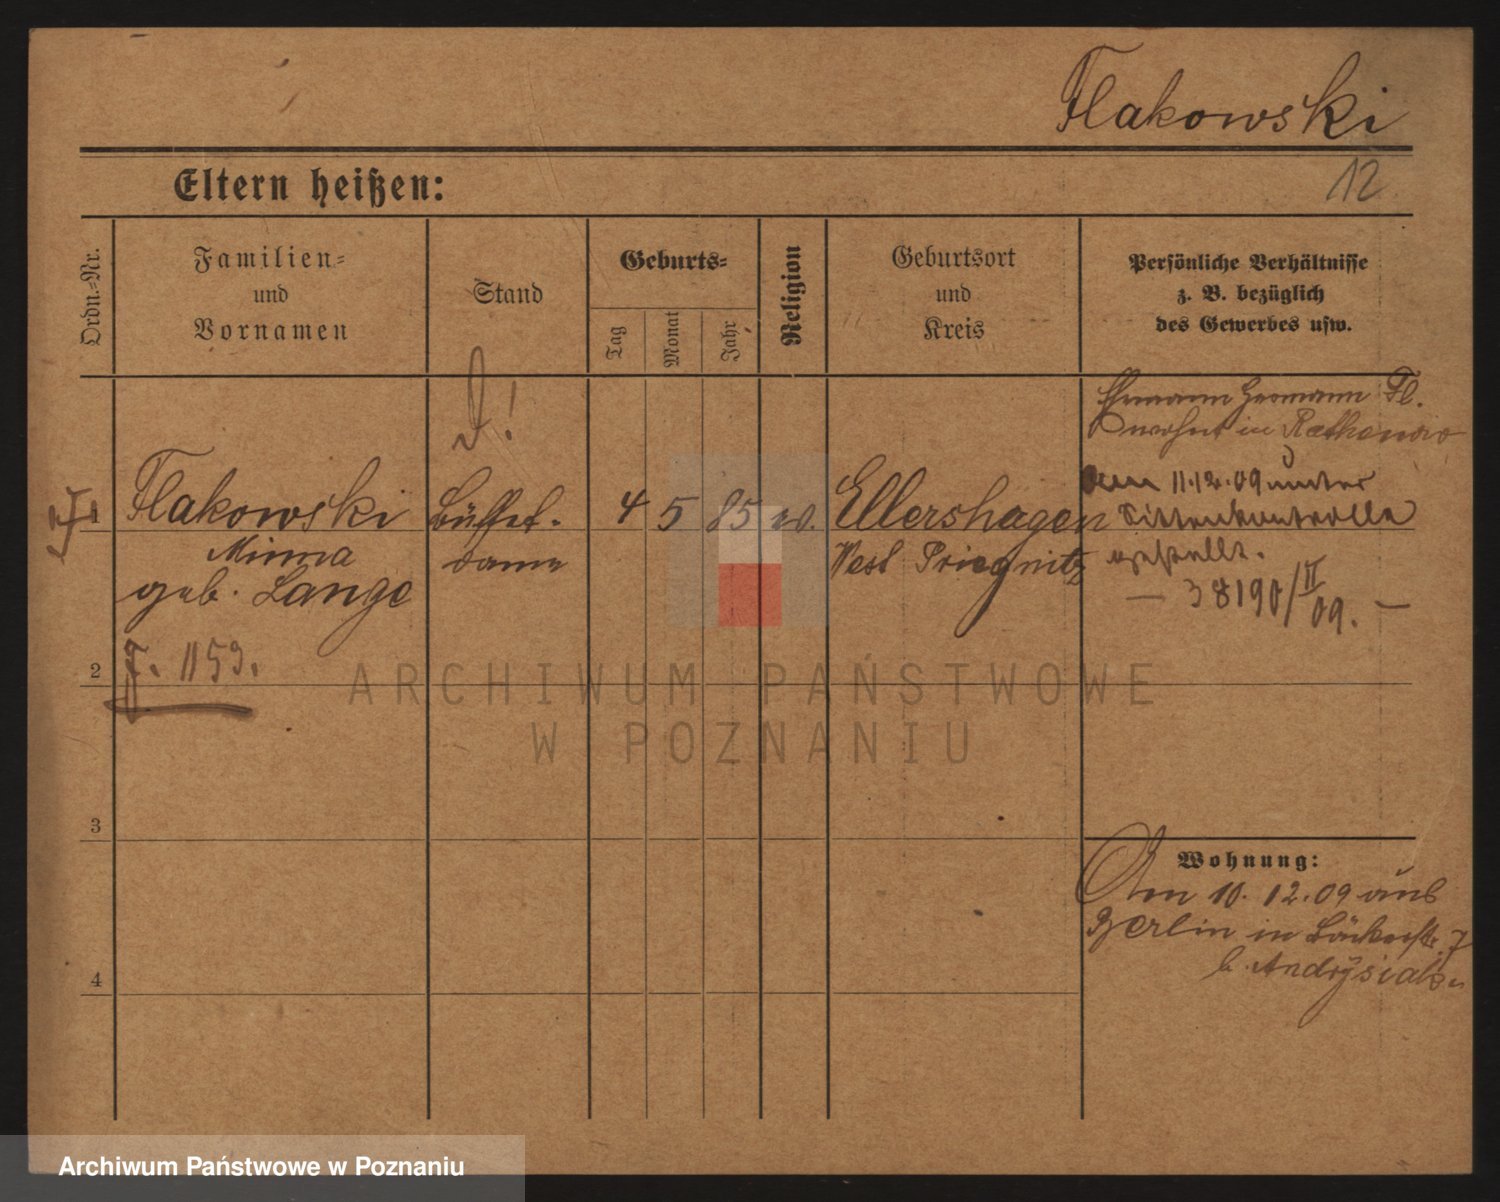 Flakowski
12
Eltern heißen:
Ordn.-Nr.
Familien- und Vornamen
Stand
Geburts-
Tag
Monat
Jahr
Religion
Geburtsort und Kreis
Persönliche Verhältnisse
z. B. bezüglich
des Gewerbes usw.
D!
Ehemann Hermann Fl.
wohnt in Rathenow
1
Flakowski
Minna
geb. Lange
J. 1153.
Büffet-
dame
4
5
85
ev.
Ellershagen
West Priegnitz
am 11.12.09 unter
Sittenkontrolle
gestellt.
— 38190/II 09. —
2
3
4
ARCHIWUM PAŃSTWOWE
W POZNANIU
Wohnung:
Am 10.12.09 aus
Berlin in Bäckerstr. 7
b. Andrysiak
Archiwum Państwowe w Poznaniu